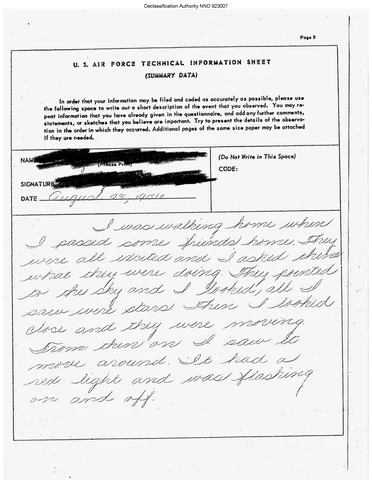 Declassification Authority NND 923007
Page 9
U. S. AIR FORCE TECHNICAL INFORMATION SHEET
(SUMMARY DATA)
In order that your information may be filed and coded as accurately as possible, please use
the following space to write out a short description of the event that you observed. You may re-
peat information that you have already given in the questionnaire, and add any further comments,
statements, or sketches that you believe are important. Try to present the details of the observa-
tion in the order in which they occurred. Additional pages of the same size paper may be attached
if they are needed.
NAME
(Please Print)
(Do Not Write in This Space)
CODE:
SIGNATURE
DATE August 28,
I was walking home when
I passed some friends home. They
were all excited and I asked them
what they were doing. They pointed
to the sky and I looked, all I
saw were stars. Then I looked
close and they were moving.
From then on I saw it
move around. It had a
red light and was flashing
on and off.